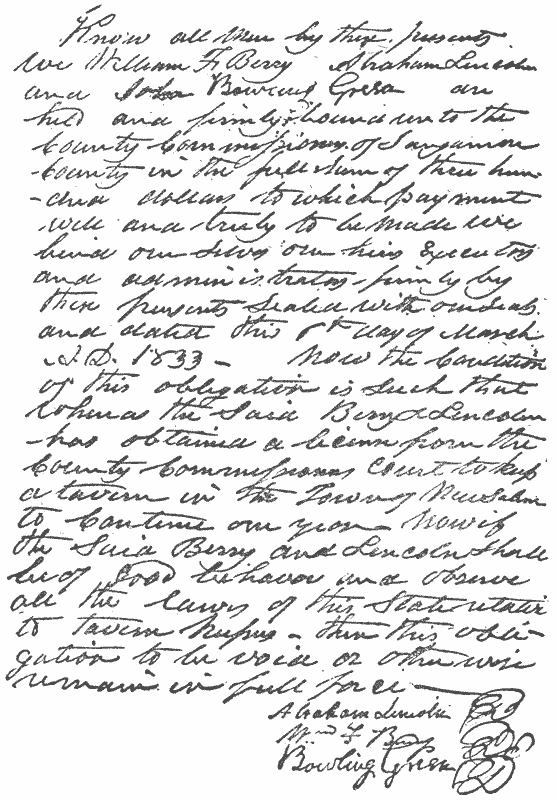 Know all men by these presents
we William F Berry Abraham Lincoln
and John Bowling Green are
held and firmly bound unto the
County Commissioners of Sangamon
County in the full sum of three hun
-dred dollars to which payment
well and truly to be made we
bind our selves our heirs Executors
and administrators firmly by
these presents Sealed with our Seals
and dated this 6th day of March
A.D. 1833 - Now the Condition
of this obligation is such that
whereas the Said Berry & Lincoln
has obtained a licence from the
County Commissioners Court to keep
a tavern in the Town of New Salem
to Continue one year Now if
the Said Berry and Lincoln shall
be of good behavor and observe
all the laws of this State relative
to tavern keeping - then this obli-
gation to be void or otherwise
remain in full force
Abraham Lincoln
Wm F Berry
Bowling Green